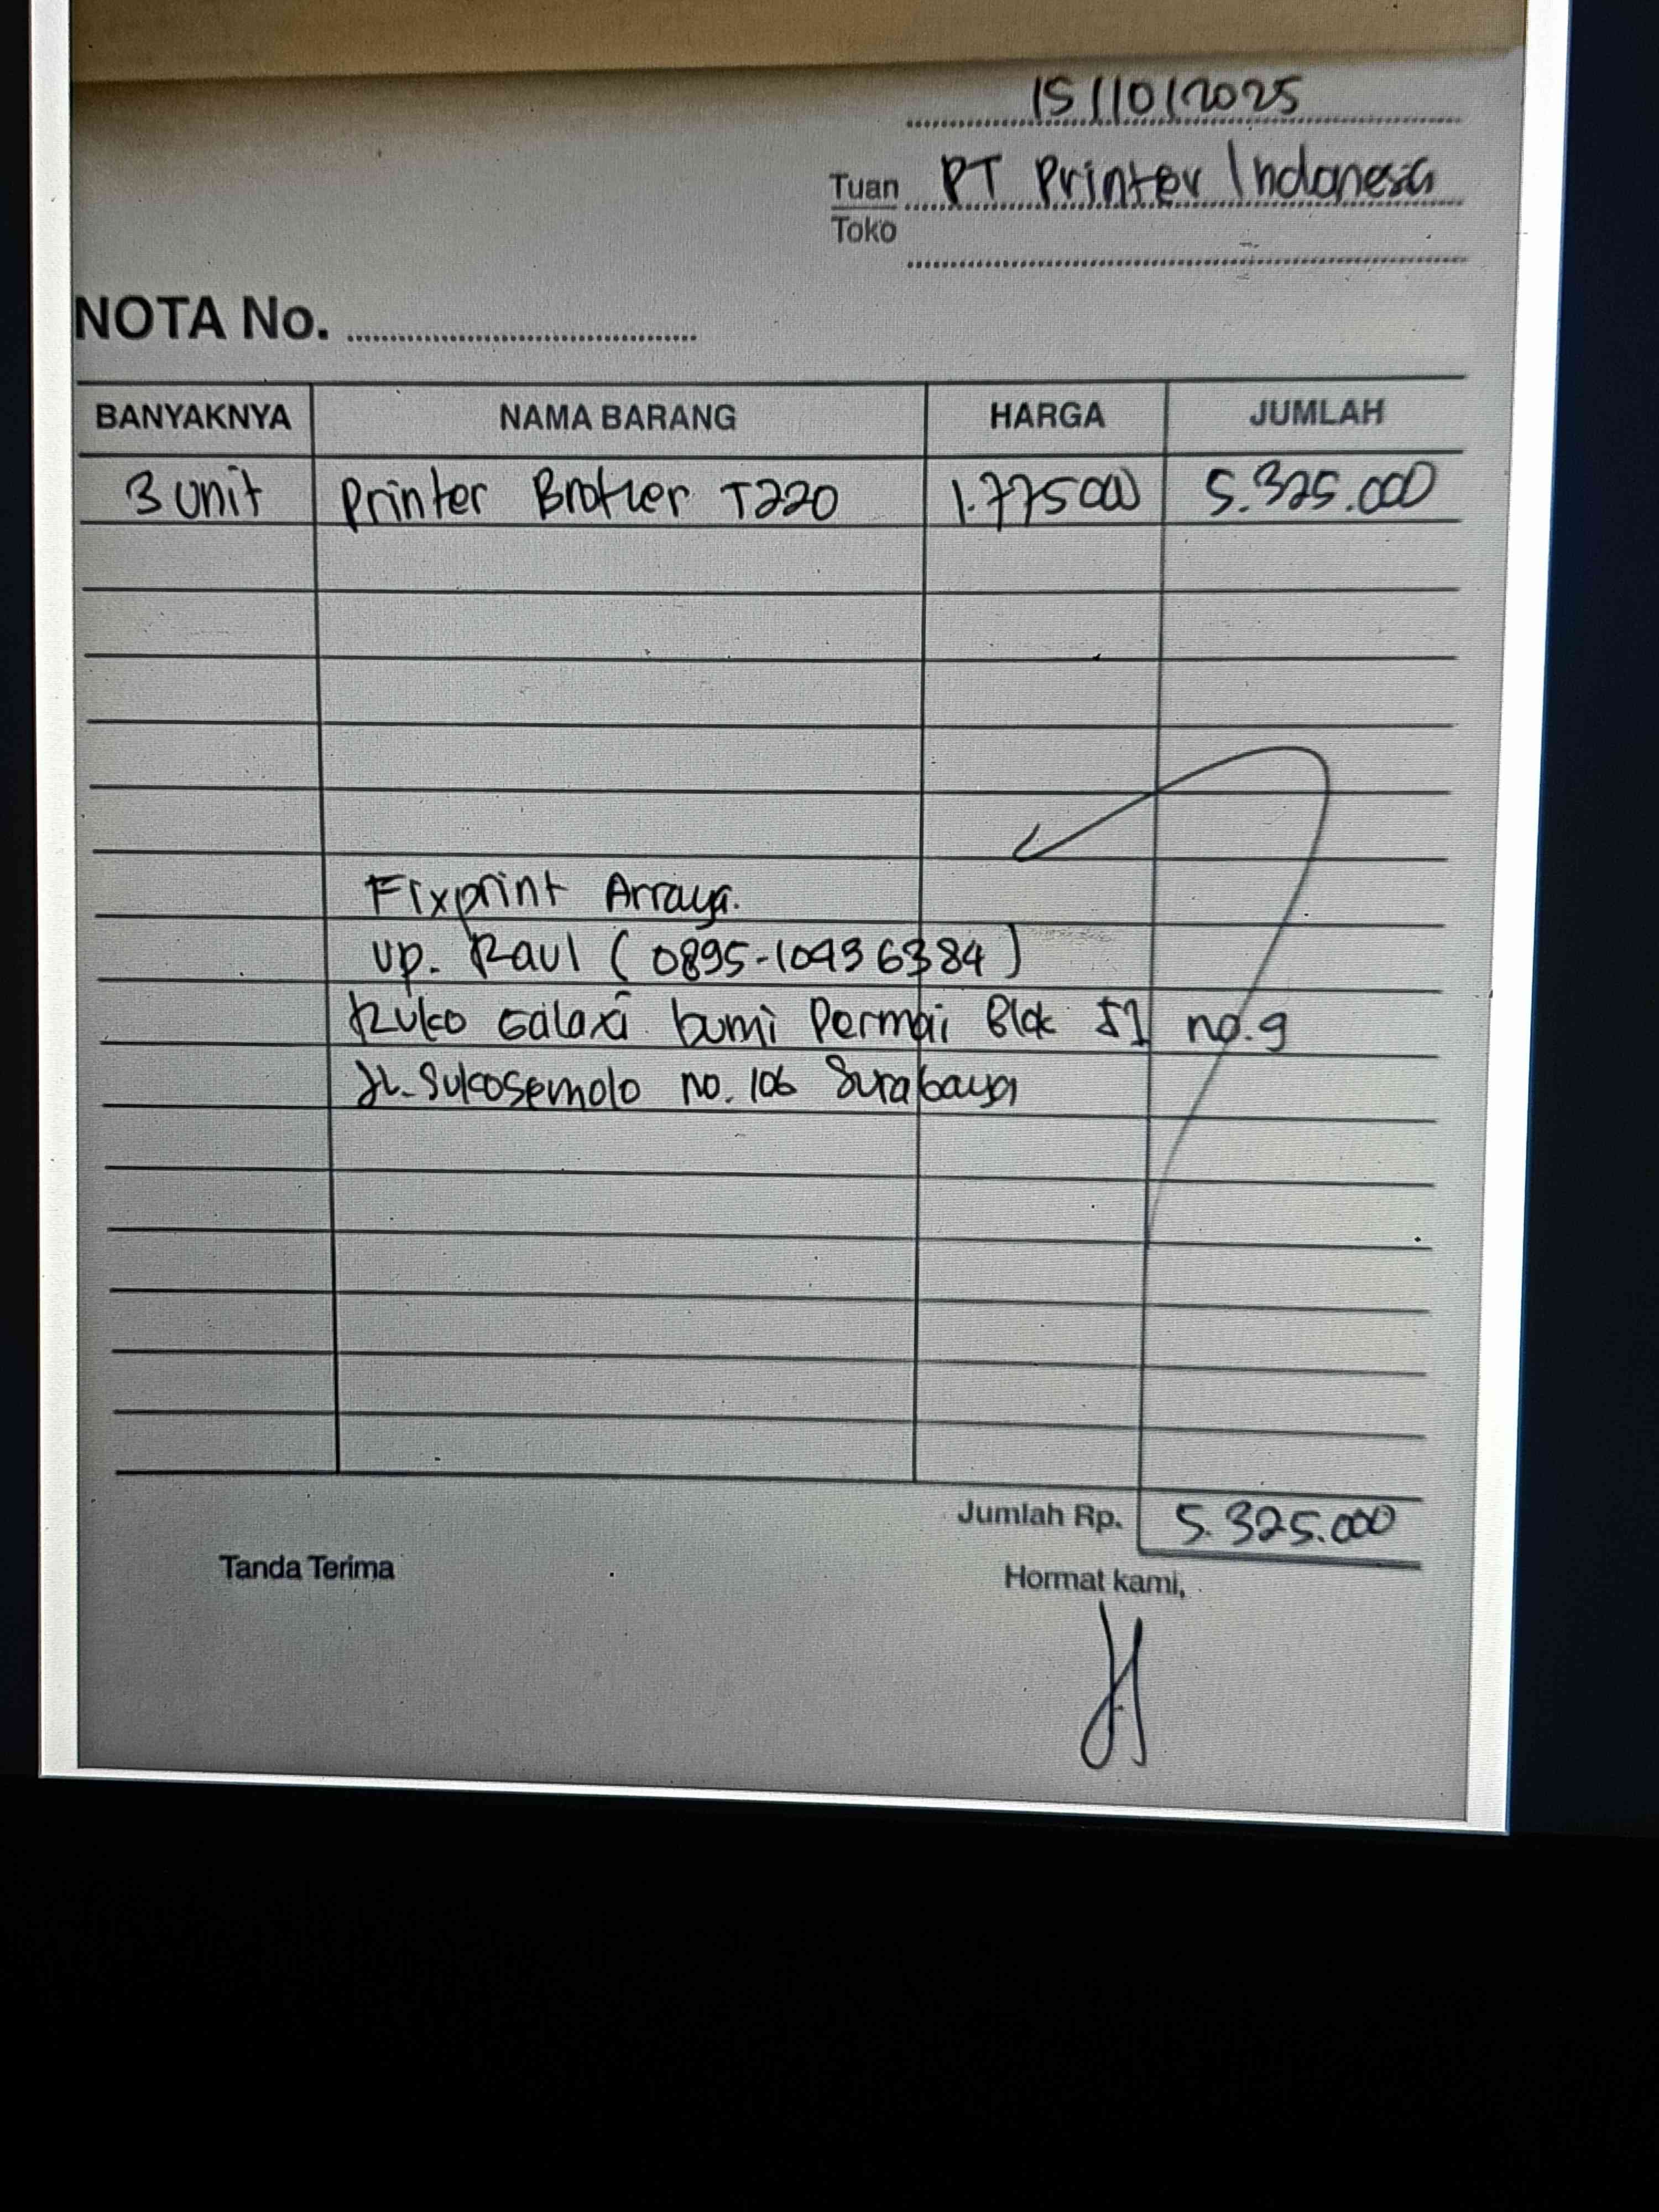 15/10/2025
Tuan PT Printer Indonesia
Toko
NOTA No.
BANYAKNYA NAMA BARANG HARGA JUMLAH
3 unit Printer Brother T220 1.775000 5.325.000
Fixprint Arraya.
up. Raul (0895-10496384)
Ruko Galaxi bumi Permai Blok no.9
JL. Sukosemolo no. 106 Surabaya
Jumlah Rp. 5.325.000
Tanda Terima Hormat kami,